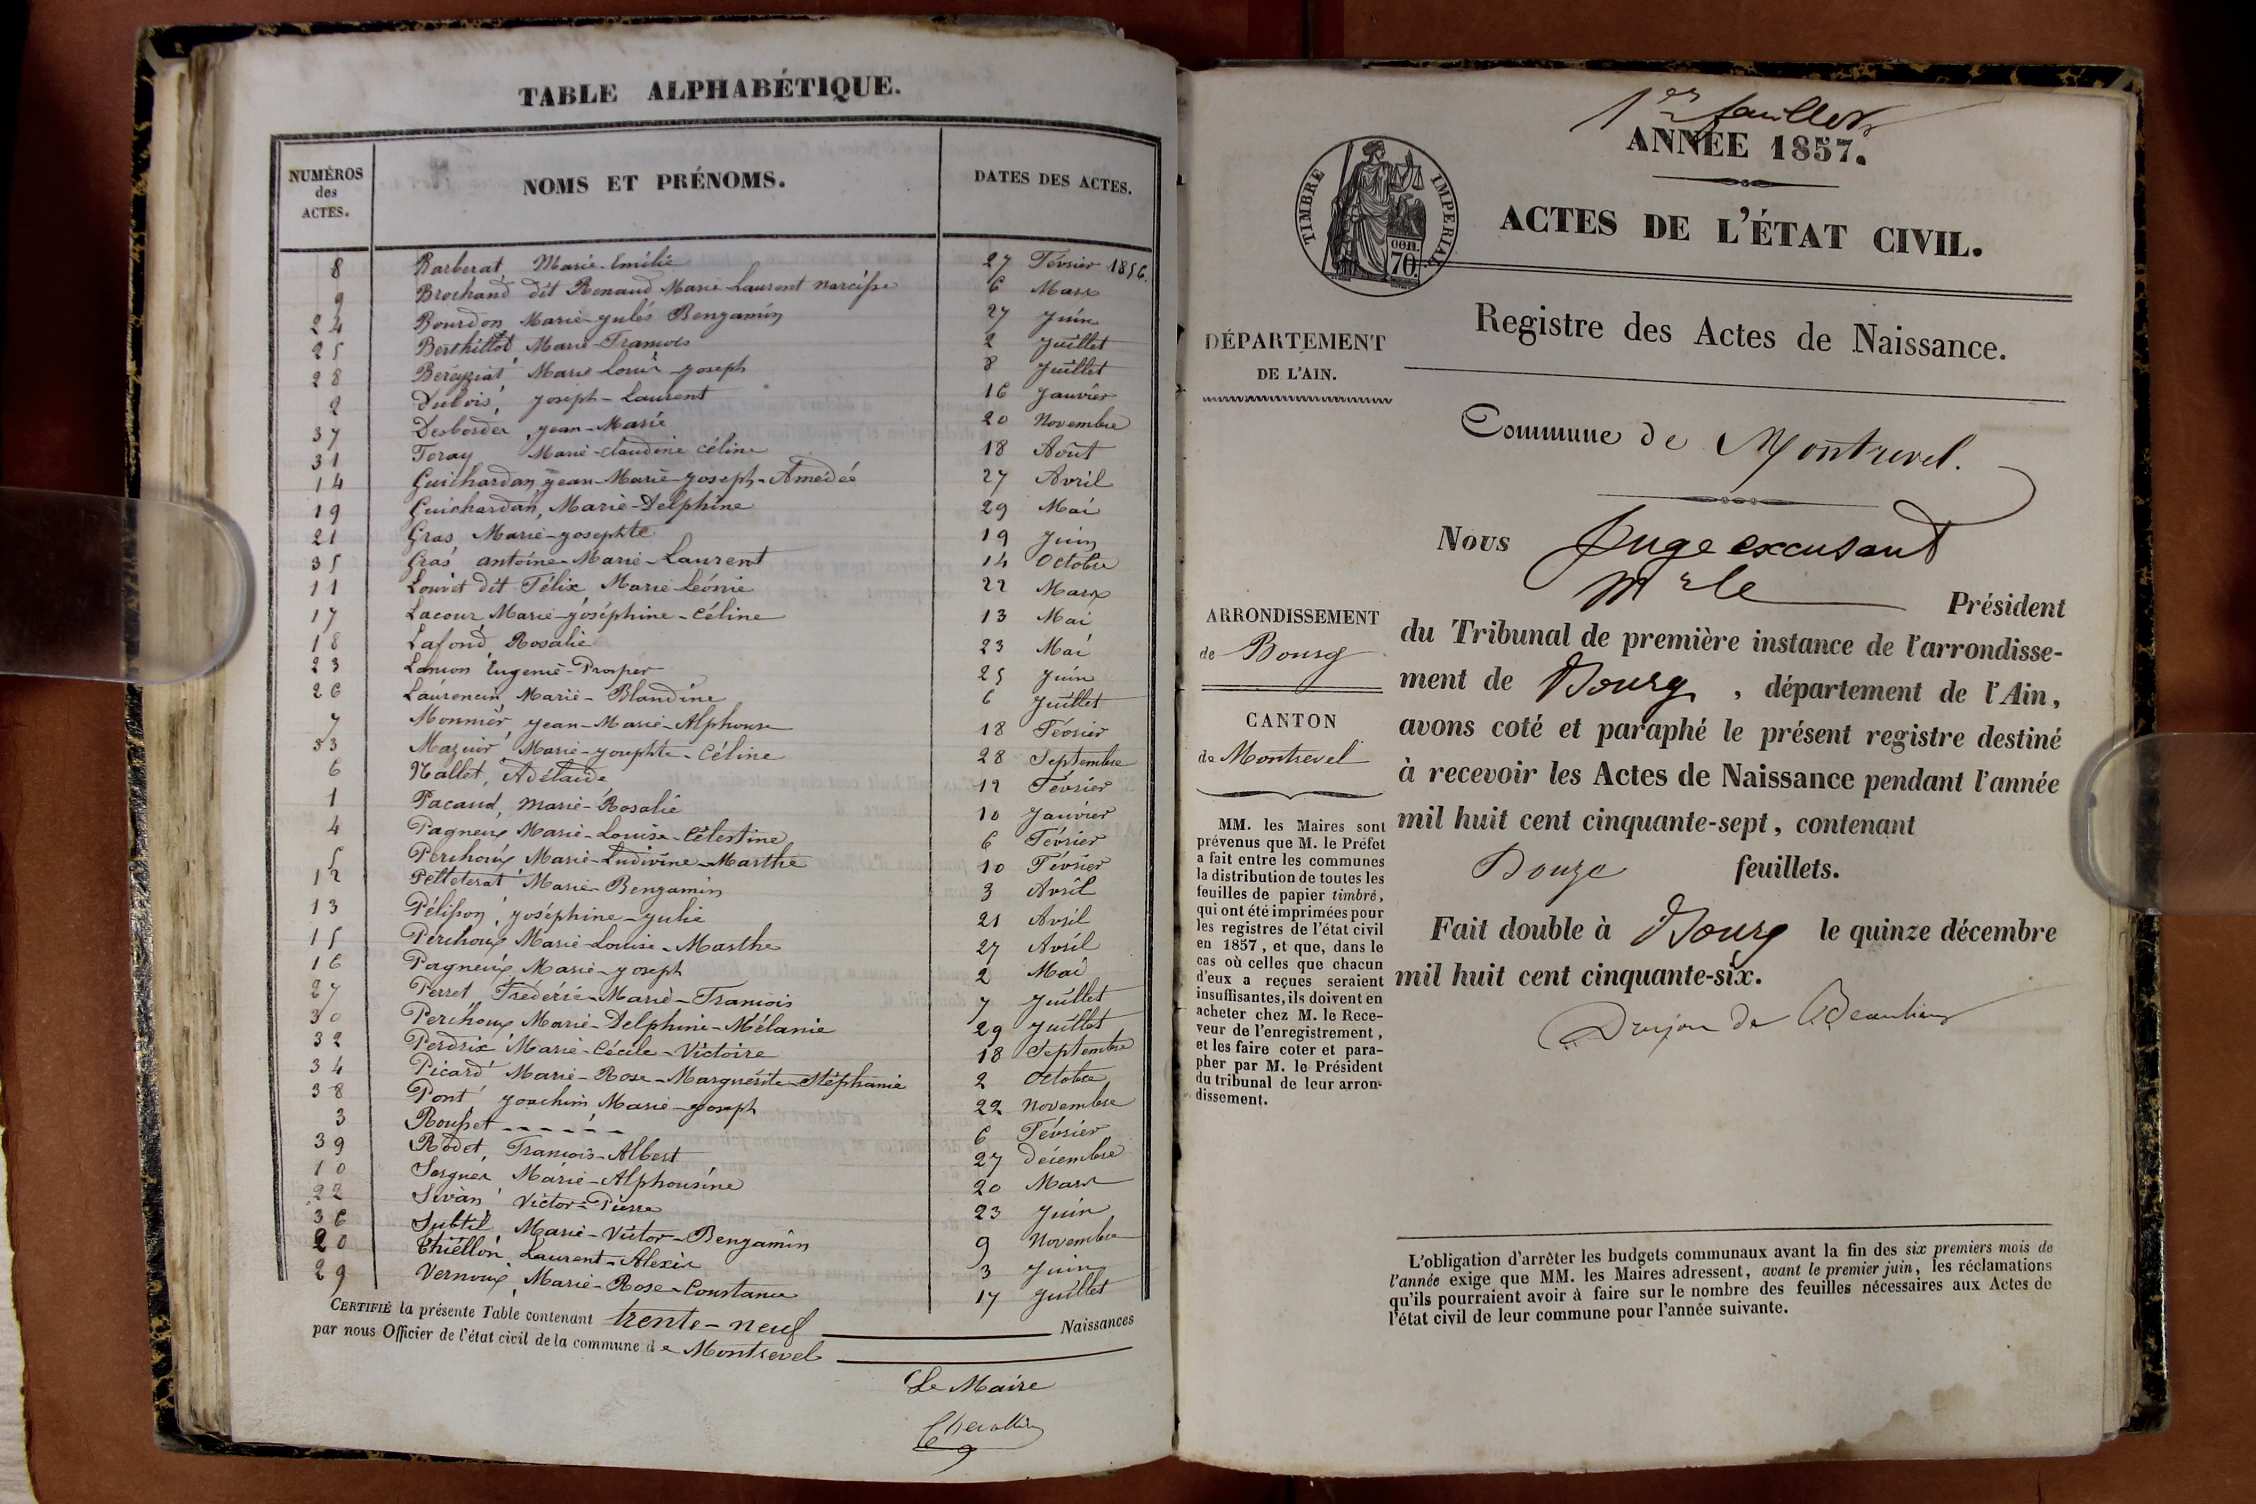 TABLE ALPHABÉTIQUE.
NUMÉROS des ACTES. NOMS ET PRÉNOMS. DATES DES ACTES.
8 Barberat, Marie-Emélie 27 Février 1856.
9 Brochand dit Renaud Marie Laurent narcisse 6 Mars
24 Bourdon, Marie-Jules Benjamin 27 Juin
25 Berthillot Marie-François 2 Juillet
28 Béréyziat Marie Louis-Joseph 8 Juillet
2 Dubois, Joseph-Laurent 16 Janvier
37 Desbordes, Jean-Marie 20 Novembre
31 Foray Marie-Claudine Céline 18 Août
14 Guichardan, Jean-Marie-Joseph-Amédée 27 Avril
19 Guichardan, Marie-Delphine 29 Mai
21 Gras, Marie-Josephte 19 Juin
35 Gras antoine-Marie-Laurent 14 Octobre
11 Louvet dit Félix, Marie Léonie 22 Mars
17 Lacour, Marie-Joséphine-Céline 13 Mai
18 Lafond, Rosalie 23 Mai
23 Lanion Eugenie-Prosper 25 Juin
26 Laurencin, Marie-Blandine 6 Juillet
7 Monnier, Jean-Marie-Alphonse 18 Février
33 Mazuir, Marie-Josephte-Céline 28 Septembre
6 Nallet, Adélaide 12 Février
1 Pacaud, Marie-Rosalie 10 Janvier
4 Pagneux, Marie-Louise-Célestine 6 Février
5 Perchoux, Marie-Ludivine-Marthe 10 Février
12 Pelleterat Marie-Benjamin 3 Avril
13 Pélisson, Joséphine-Julie 21 Avril
15 Perchoux, Marie-Louise-Marthe 27 Avril
16 Pagneux, Marie-Joseph 2 Mai
27 Perret, Fréderic-Marie-François 7 Juillet
30 Perchoux, Marie-Delphine-Mélanie 29 Juillet
32 Perdrix, Marie-Cécile-Victoire 18 Septembre
34 Picard, Marie-Rose-Marguérite-Stéphanie 2 Octobre
38 Pont Joachim, Marie-Joseph 22 Novembre
3 Rousset - - - - - - 6 Février
39 Rodet, François-Albert 27 Décembre
10 Serguer, Marie-Alphonsine 20 Mars
22 Sivan, Victor-Pierre 23 Juin
36 Subtil, Marie-Victor-Benjamin 9 Novembre
20 Thiéllon, Laurent-Alexis 3 Juin
29 Vernoux, Marie-Rose-Constance 17 Juillet
CERTIFIÉ la présente Table contenant trente-neuf Naissances
par nous Officier de l'état civil de la commune de Montrevel
Le Maire
1er feuillet
ANNÉE 1857.
TIMBRE IMPERIAL
cen. 70.
ACTES DE L'ÉTAT CIVIL.
Registre des Actes de Naissance.
DÉPARTEMENT
DE L'AIN.
ARRONDISSEMENT
de Bourg
CANTON
de Montrevel
MM. les Maires sont
prévenus que M. le Préfet
a fait entre les communes
la distribution de toutes les
feuilles de papier timbré,
qui ont été imprimées pour
les registres de l'état civil
en 1857, et que, dans le
cas où celles que chacun
d'eux a reçues seraient
insuffisantes, ils doivent en
acheter chez M. le Rece-
veur de l'enregistrement,
et les faire coter et para-
pher par M. le Président
du tribunal de leur arron-
dissement.
Commune de Montrevel.
Nous Juge excusant
Mr le Président
du Tribunal de première instance de l'arrondisse-
ment de Bourg, département de l'Ain,
avons coté et paraphé le présent registre destiné
à recevoir les Actes de Naissance pendant l'année
mil huit cent cinquante-sept, contenant
Douze feuillets.
Fait double à Bourg le quinze décembre
mil huit cent cinquante-six.
Drujon de Beaulieu
L'obligation d'arrêter les budgets communaux avant la fin des six premiers mois de
l'année exige que MM. les Maires adressent, avant le premier juin, les réclamations
qu'ils pourraient avoir à faire sur le nombre des feuilles nécessaires aux Actes de
l'état civil de leur commune pour l'année suivante.